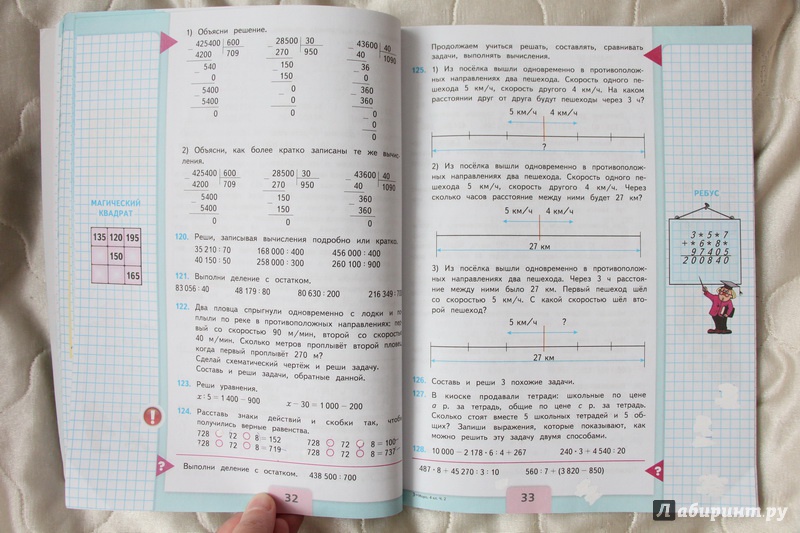 1) Объясни решение.
425400 | 600
4200 | 709
540
0
5400
5400
0
28500 | 30
270 | 950
150
150
0
0
0
43600 | 40
40 | 1090
36
0
360
360
0
0
0
2) Объясни, как более кратко записаны те же вычис-
ления.
425400 | 600
4200 | 709
5400
5400
0
28500 | 30
270 | 950
150
150
0
43600 | 40
40 | 1090
360
360
0
МАГИЧЕСКИЙ
КВАДРАТ
135 120 195
150
165
120. Реши, записывая вычисления подробно или кратко.
35 210 : 70 168 000 : 400 456 000 : 400
40 150 : 50 258 000 : 300 260 100 : 900
121. Выполни деление с остатком.
83 056 : 40 48 179 : 80 80 630 : 200 216 349 :
122. Два пловца спрыгнули одновременно с лодки и по-
плыли по реке в противоположных направлениях:
вый со скоростью 90 м/мин, второй со скоростью
40 м/мин. Сколько метров проплывёт второй пловец,
когда первый проплывёт 270 м?
Сделай схематический чертёж и реши задачу.
Составь и реши задачи, обратные данной.
123. Реши уравнения.
x : 5 = 1 400 − 900 x − 30 = 1 000 − 200
124. Расставь знаки действий и скобки так, чтобы
получились верные равенства.
728 72 8 = 152 728 72 8 = 100
728 72 8 = 719 728 72 8 = 737
!
?
Выполни деление с остатком. 438 500 : 700
32
Продолжаем учиться решать, составлять, сравнивать
задачи, выполнять вычисления.
125. 1) Из посёлка вышли одновременно в противополож-
ных направлениях два пешехода. Скорость одного пе-
шехода 5 км/ч, скорость другого 4 км/ч. На каком
расстоянии друг от друга будут пешеходы через 3 ч?
5 км/ч 4 км/ч
?
2) Из посёлка вышли одновременно в противополож-
ных направлениях два пешехода. Скорость одного пе-
шехода 5 км/ч, скорость другого 4 км/ч. Через
сколько часов расстояние между ними будет 27 км?
5 км/ч 4 км/ч
27 км
3) Из посёлка вышли одновременно в противополож-
ных направлениях два пешехода. Через 3 ч расстоя-
ние между ними было 27 км. Первый пешеход шёл
со скоростью 5 км/ч. С какой скоростью шёл вто-
рой пешеход?
5 км/ч ?
27 км
РЕБУС
3*5*7
+ *6*8*
97405
200840
126. Составь и реши 3 похожие задачи.
127. В киоске продавали тетради: школьные по цене
a р. за тетрадь, общие по цене c р. за тетрадь.
Сколько стоят вместе 5 школьных тетрадей и 5 об-
щих? Запиши выражения, которые показывают, как
можно решить эту задачу двумя способами.
128. 10 000 − 2 178 · 6 : 4 + 267 240 · 3 + 4 540 : 20
487 · 8 + 45 270 : 3 : 10 560 : 7 + (3 820 − 850)
?
33
Лабиринт.ру